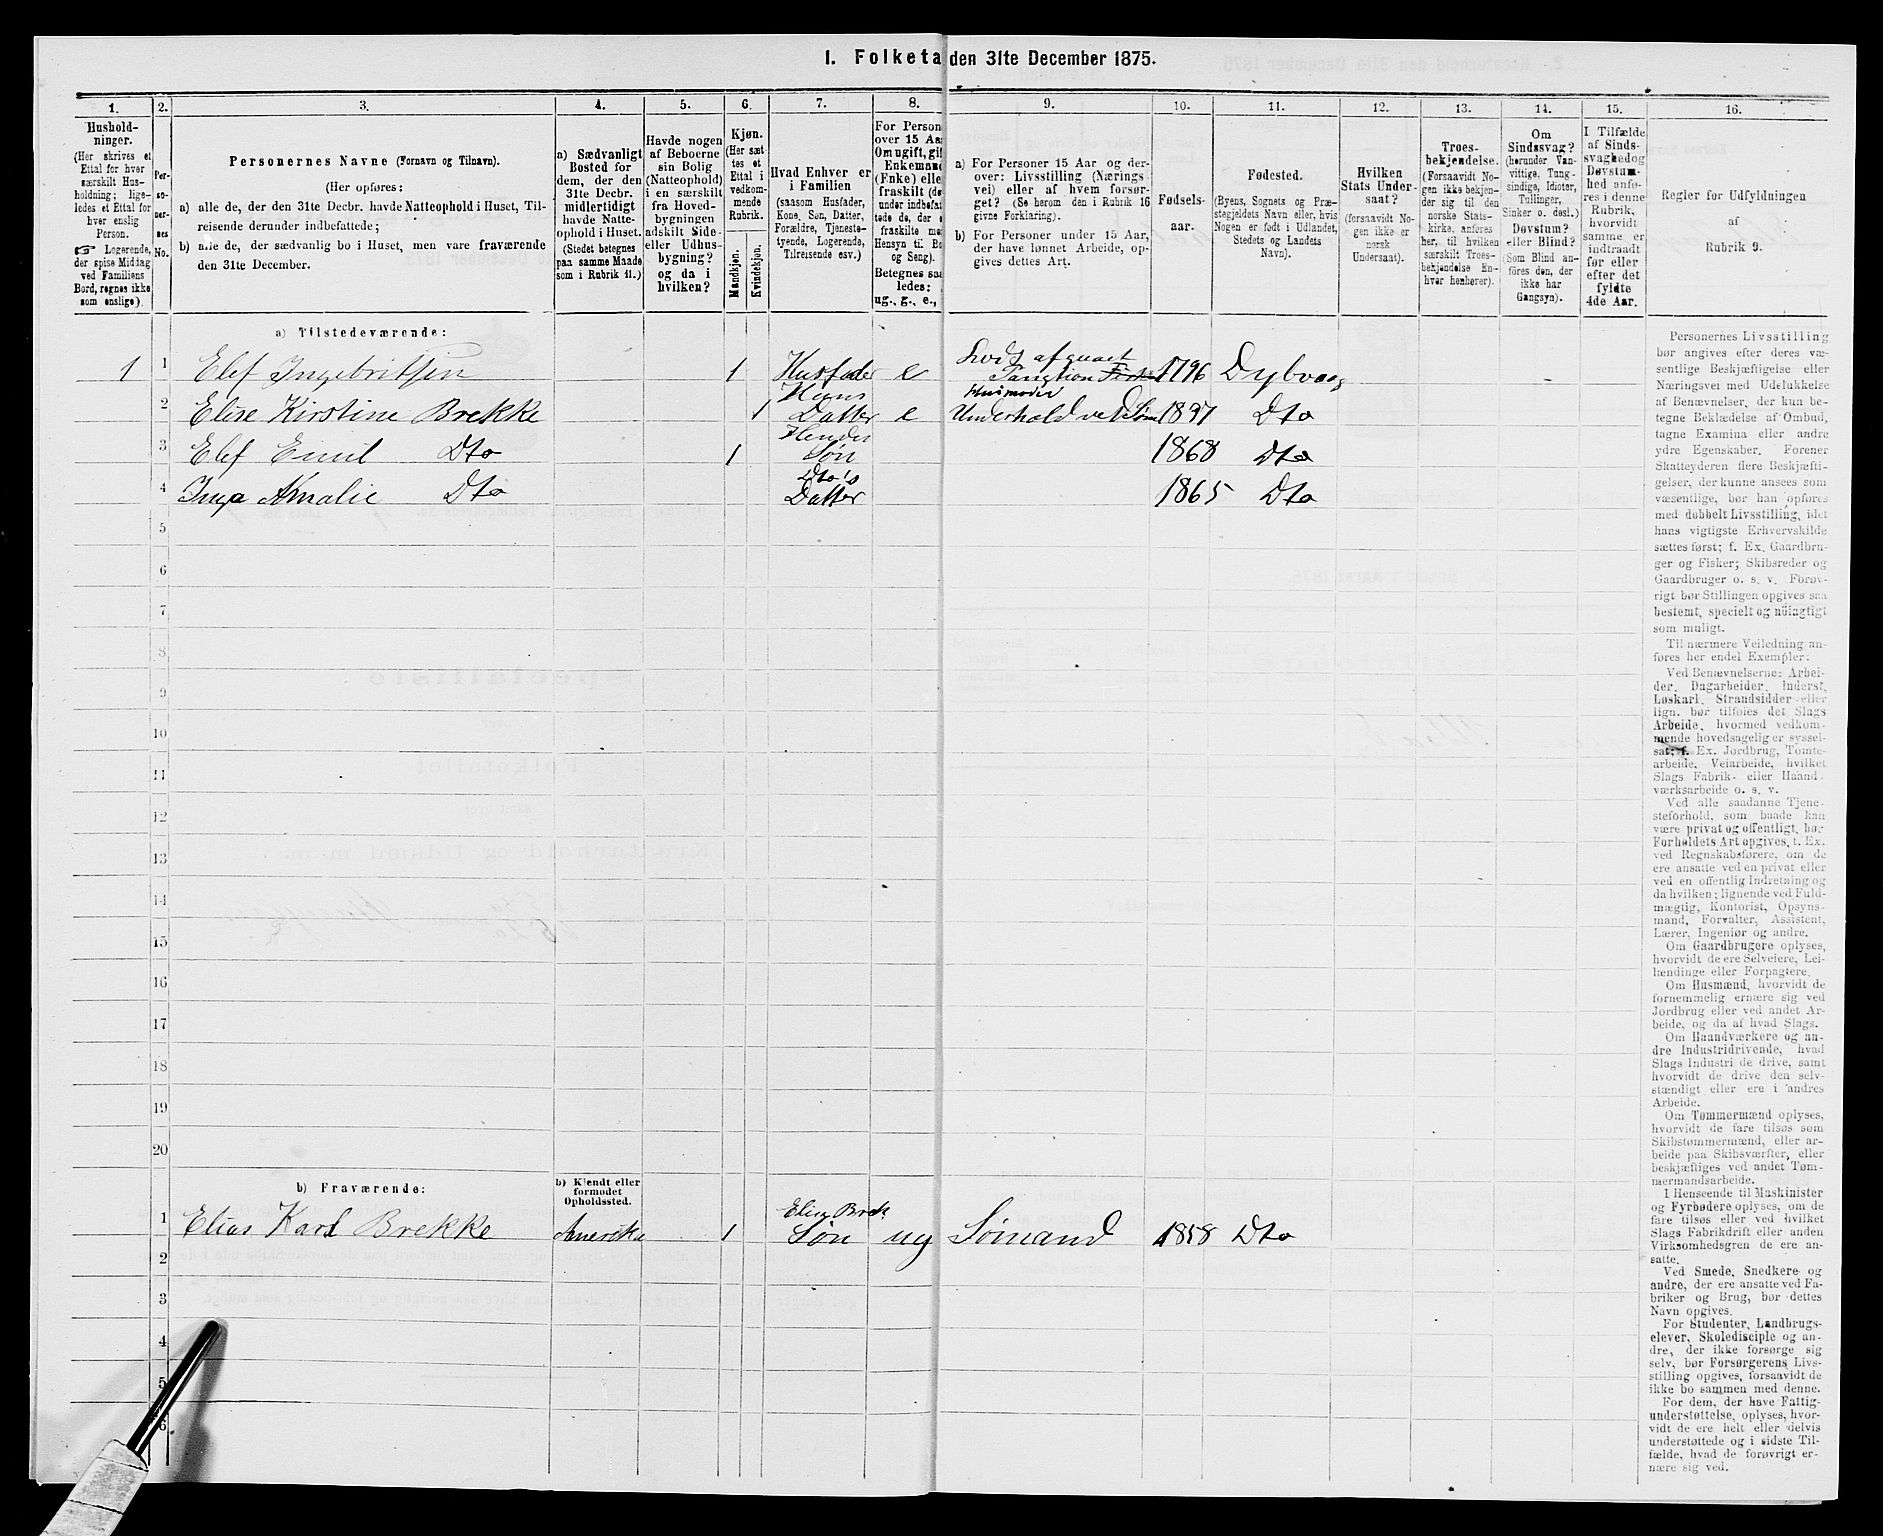 1. Folketa den 31te December 1875.
1. 2. 3. 4. 5. 6. 7. 8. 9. 10. 11. 12. 13. 14. 15. 16.
Hushold-
ninger.
(Her skrives et
Ettal for hver
særskilt Hus-
holdning; lige-
ledes et Ettal for
hver enslig
Person.
☞ Logerende,
der spise Middag
ved Familiens
Bord, regnes ikke
som enslige).
Per-
so-
ner-
nes
No.
Personernes Navne (Fornavn og Tilnavn).
(Her opføres:
a) alle de, der den 31te Decbr. havde Natteophold i Huset, Til-
reisende derunder indbefattede;
b) alle de, der sædvanlig bo i Huset, men vare fraværende
den 31te December.
a) Sædvanligt
Bosted for
dem, der den
31te Decbr.
midlertidigt
havde Natte-
ophold i Huset.
(Stedet betegnes
paa samme Maade
som i Rubrik 11.)
Havde nogen
af Beboerne
sin Bolig
(Natteophold)
i en særskilt
fra Hoved-
bygningen
adskilt Side-
eller Udhus-
bygning?
og da i
hvilken?
Kjøn.
(Her sæt-
tes et
Ettal i
vedkom-
mende
Rubrik.
Mandkjøn.
Kvindekjøn.
Hvad Enhver er
i Familien
(saasom Husfader,
Kone, Søn, Datter,
Forældre, Tjeneste-
tyende, Logerende,
Tilreisende osv.)
For Person
over 15 Aa
Om ugift, gi
Enkemand
(Enke) elle
fraskilt (de
under indbefat
tede de, der e
fraskilte m
Hensyn til Bo
og Seng).
Betegnes saa
ledes:
ug., g., e.,
a) For Personer 15 Aar og der-
over: Livsstilling (Nærings
vei) eller af hvem forsør-
get? (Se herom den i Rubrik 16
givne Forklaring).
b) For Personer under 15 Aar,
der have lønnet Arbeide, op-
gives dettes Art.
Fødsels-
aar.
Fødested.
(Byens, Sognets og Præ-
stegjeldets Navn eller, hvis
Nogen er født i Udlandet,
Stedets og Landets
Navn).
Hvilken
Stats Under-
saat?
(forsaavidt No-
gen ikke er
norsk
Undersaat).
Troes-
bekjendelse.
(Forsaavidt No-
gen ikke bekjen-
der sig til den
norske Stats-
kirke, anføres
her, til hvilken
særskilt Troes-
bekjendelse En-
hver henhører).
Om
Sindssvag?
(herunder Van-
vittige, Tung-
sindige, Idioter,
Tullinger,
Sinker o. desl.)
Døvstum?
eller Blind?
(Som Blind an-
føres den, der
ikke har
Gangsyn).
I Tilfælde
af Sinds-
svaghedog
Døvstum-
hed anfø-
res i denne
Rubrik,
hvorvidt
samme er
indtraadt
før eller
efter det
fyldte
4de Aar.
Regler for Udfyldningen
af
Rubrik 9.
a) Tilstedeværende:
1 1 Elef Ingebritsen 1 Husfader e Lods afguaet 1796 Dybvaag
Hans
Husmoder
2 Elise Kirstine Brekke 1 Datter e Underhold ved 18 7 Dto
Hendes
3 Elef Emil Dto 1 Søn 1868 Dto
Dto's
4 Inga Amalie Dto Datter 1865 Dto
5
6
7
8
9
10
11
12
13
14
15
16
17
18
19
20
b) Fraværende:
b) Kjendt eller
formodet
Opholdssted.
Elise Brek
1 Elias Karl Brekke Amerika 1 Søn ug Sømand 1858 Dto
2
3
4
5
6
Personernes Livsstilling
bør angives efter deres væ-
sentlige Beskjæftigelse eller
Næringsvei med Udelukkelse
af Benævnelser, der kun be-
tegne Beklædelse af Ombud,
tagne Examina eller andre
ydre Egenskaber. Forener
Skatteyderen flere Beskjæfti-
gelser, der kunne ansees som
væsentlige, bør han opføres
med dobbelt Livsstilling, idet
hans vigtigste Erhvervskilde
sættes først; f. Ex. Gaardbru-
ger og Fisker; Skibsreder og
Gaardbruger o. s. v. Forøv-
rigt bør Stillingen opgives saa
bestemt, specielt og nöiagtigt
som muligt.
Til nærmere Veiledning an-
føres her endel Exempler:
Ved Benævnelserne: Arbei-
der, Dagarbeider, Inderst,
Løskarl, Strandsidder eller
lign. bør tilføies det Slags
Arbeide, hvormed vedkom-
mende hovedsagelig er syssel-
sat; f. Ex. Jordbrug, Tomte-
arbeide, Veiarbeide, hvilket
Slags Fabrik- eller Haand-
værksarbeide o. s. v.
Ved alle saadanne Tjene-
steforhold, som baade kan
være privat og offentligt, bør
Forholdets Art opgives, t. Ex.
ved Regnskabsførere, om de
ere ansatte ved en privat eller
ved en offentlig Indretning og
da hvilken; lignende ved Fuld-
mægtig, Kontorist, Opsyns-
mand, Forvalter, Assistent,
Lærer, Ingeniør og andre.
Om Gaardbrugere oplyses,
hvorvidt de ere Selveiere, Lei-
lændinge eller Forpagtere.
Om Husmænd, hvorvidt de
fornemmelig ernære sig ved
Jordbrug eller ved andet Ar-
beide, og da af hvad Slags.
Om Haandværkere og an-
dre Industridrivende, hvad
Slags Industri de drive, samt
hvorvidt de drive den selv-
stændigt eller ere i andres
Arbeide.
Om Tømmermænd oplyses,
hvorvidt de fare tilsøs som
Skibstømmermænd, eller ar-
beide paa Skibsværfter, eller
beskjæftiges ved andet Tøm-
mermandsarbeide.
I Henseende til Maskinister
og Fyrbødere oplyses, om de
fare tilsøs eller ved hvilket
Slags Fabrikdrift eller anden
Virksomhedsgren de ere an-
satte.
Ved Smede, Snedkere og
andre, der ere ansatte ved Fa-
briker og Brug, bør dettes
Navn opgives.
For Studenter, Landbrugs-
elever, Skoledisciple og an-
dre, der ikke forsørge sig
selv, bør Forsørgerens Livs-
stilling opgives, forsaavidt de
ikke bo sammen med denne.
For dem, der have Fattig-
understøttelse, oplyses, hvor-
vidt de ere helt eller delvis
understøttede og i sidste Til-
fælde, hvad de forøvrigt er-
nære sig ved.